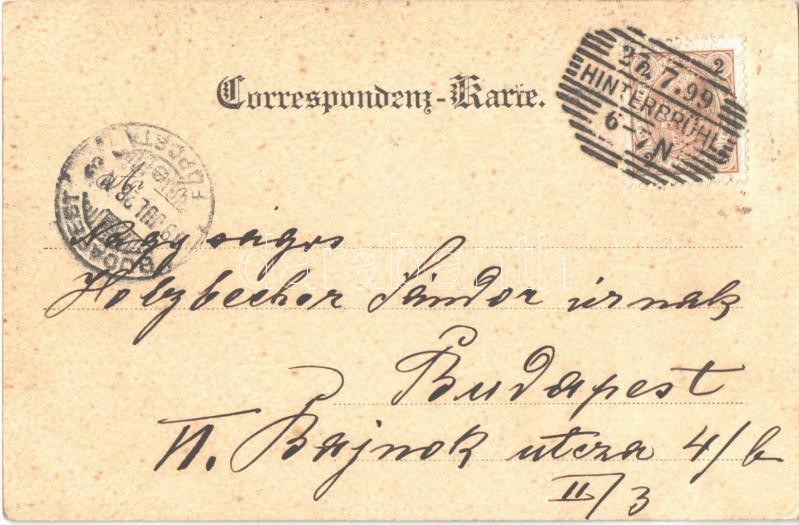 Correspondenz-Karte.
2
27.7.99
HINTERBRÜHL
6-7N
BUDAPEST
FŐPOSTA
Nagyságos
Holzbecher Sándor úrnak
Budapest
VI. Bajnok utcza 4/b
II/3
darabanth